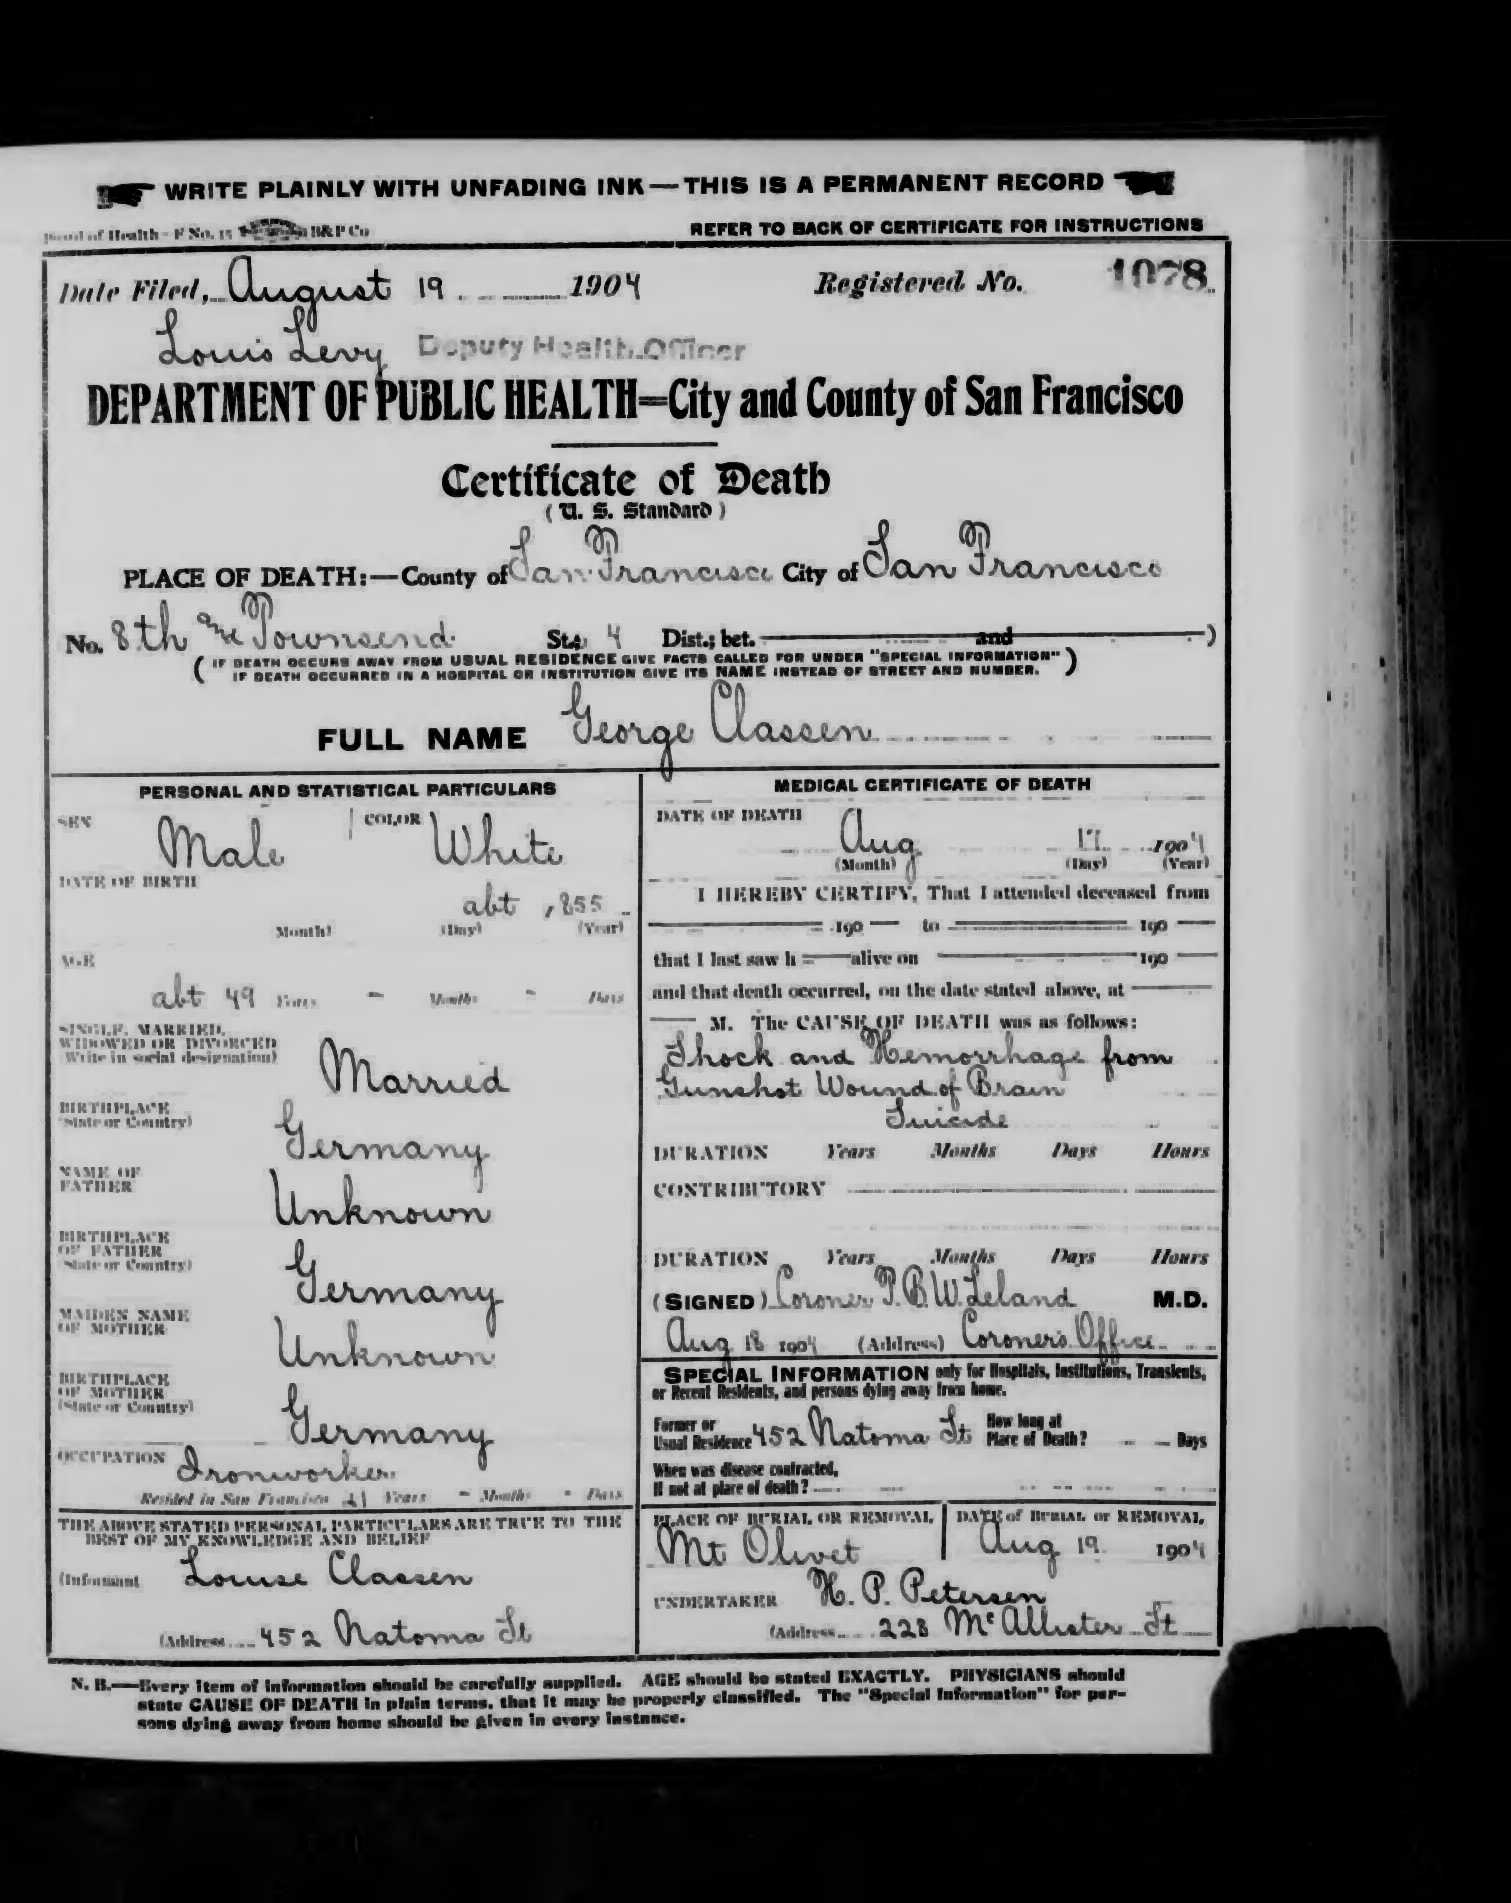 WRITE PLAINLY WITH UNFADING INK — THIS IS A PERMANENT RECORD
Board of Health - F No. 15 B&P Co
REFER TO BACK OF CERTIFICATE FOR INSTRUCTIONS
Date Filed, August 19 1904 Registered No. 1078
Louis Levy Deputy Health Officer
DEPARTMENT OF PUBLIC HEALTH=City and County of San Francisco
Certificate of Death
(U. S. Standard)
PLACE OF DEATH:—County of San Francisco City of San Francisco
No. 8th and Townsend St.; 4 Dist.; bet. and )
( IF DEATH OCCURS AWAY FROM USUAL RESIDENCE GIVE FACTS CALLED FOR UNDER "SPECIAL INFORMATION" )
IF DEATH OCCURRED IN A HOSPITAL OR INSTITUTION GIVE ITS NAME INSTEAD OF STREET AND NUMBER.
FULL NAME George Classen
PERSONAL AND STATISTICAL PARTICULARS
SEX Male COLOR White
DATE OF BIRTH
abt 1855
(Month) (Day) (Year)
AGE
abt 49 Years - Months - Days
SINGLE, MARRIED,
WIDOWED OR DIVORCED
(Write in social designation)
Married
BIRTHPLACE
(State or Country)
Germany
NAME OF
FATHER
Unknown
BIRTHPLACE
OF FATHER
(State or Country)
Germany
MAIDEN NAME
OF MOTHER
Unknown
BIRTHPLACE
OF MOTHER
(State or Country)
Germany
OCCUPATION Ironworker
Resided in San Francisco 21 Years - Months - Days
THE ABOVE STATED PERSONAL PARTICULARS ARE TRUE TO THE
BEST OF MY KNOWLEDGE AND BELIEF
(Informant Louise Classen
(Address 452 Natoma St
MEDICAL CERTIFICATE OF DEATH
DATE OF DEATH
Aug 17 1904
(Month) (Day) (Year)
I HEREBY CERTIFY, That I attended deceased from
190 to 190
that I last saw h alive on 190
and that death occurred, on the date stated above, at
M. The CAUSE OF DEATH was as follows:
Shock and Hemorrhage from
Gunshot Wound of Brain
Suicide
DURATION Years Months Days Hours
CONTRIBUTORY
DURATION Years Months Days Hours
(SIGNED) Coroner T. B. W. Leland M.D.
Aug 18 1904 (Address) Coroner's Office
SPECIAL INFORMATION only for Hospitals, Institutions, Transients,
or Recent Residents, and persons dying away from home.
Former or
Usual Residence 452 Natoma St How long at
Place of Death? Days
When was disease contracted,
If not at place of death?
PLACE OF BURIAL OR REMOVAL DATE of BURIAL or REMOVAL
Mt Olivet Aug 19 1904
UNDERTAKER H. P. Petersen
(Address 228 McAllister St
N. B.—Every item of information should be carefully supplied. AGE should be stated EXACTLY. PHYSICIANS should
state CAUSE OF DEATH in plain terms, that it may be properly classified. The "Special Information" for per-
sons dying away from home should be given in every instance.